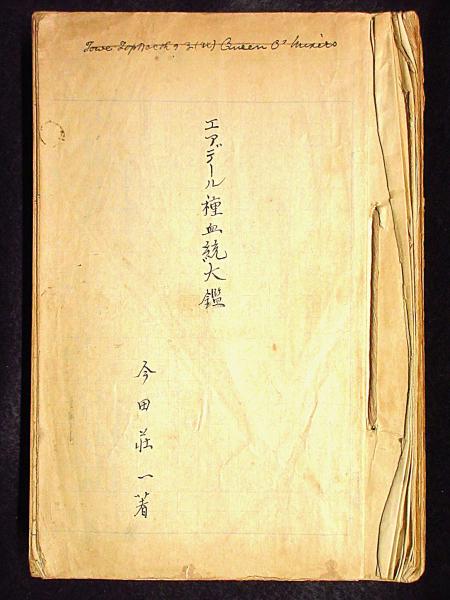 Queen O' Mixers
エアデール種血統大鑑
今田荘一著